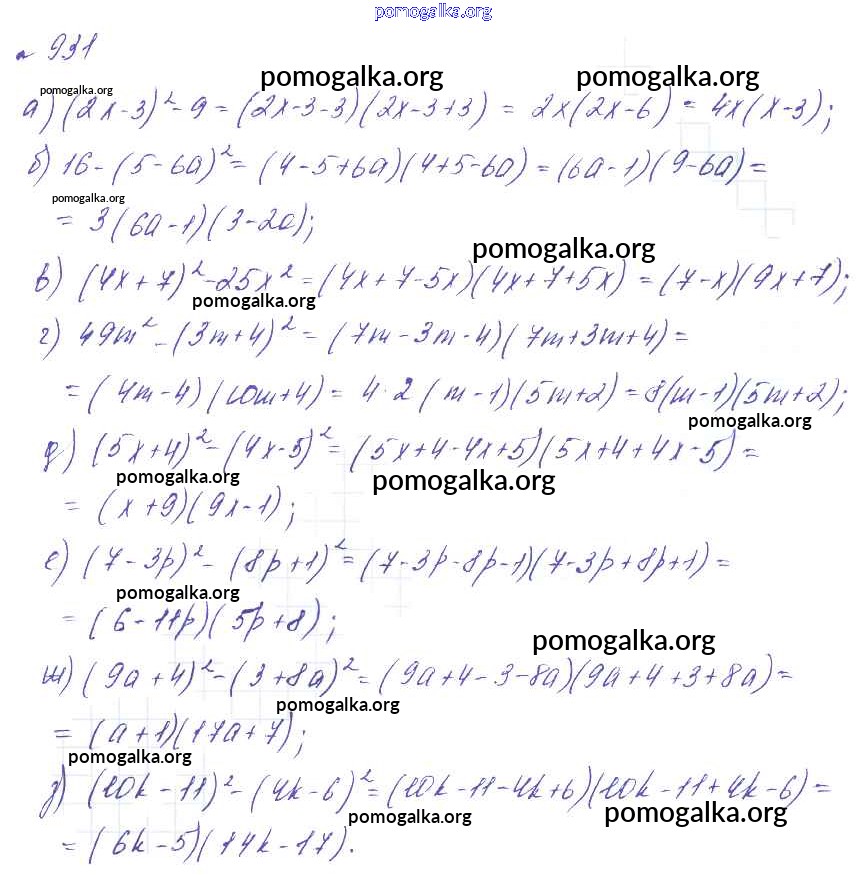 pomogalka.org
№ 931
pomogalka.org pomogalka.org pomogalka.org
а) (2x-3)² - 9 = (2x-3-3)(2x-3+3) = 2x(2x-6) = 4x(x-3);
б) 16 - (5-6a)² = (4-5+6a)(4+5-6a) = (6a-1)(9-6a) =
pomogalka.org
= 3(6a-1)(3-2a);
pomogalka.org
в) (4x+7)² - 25x² = (4x+7-5x)(4x+7+5x) = (7-x)(9x+7);
pomogalka.org
г) 49m² - (3m+4)² = (7m-3m-4)(7m+3m+4) =
= (4m-4)(10m+4) = 4·2(m-1)(5m+2) = 8(m-1)(5m+2);
pomogalka.org
д) (5x+4)² - (4x-5)² = (5x+4-4x+5)(5x+4+4x-5) =
pomogalka.org pomogalka.org
= (x+9)(9x-1);
е) (7-3p)² - (8p+1)² = (7-3p-8p-1)(7-3p+8p+1) =
pomogalka.org
= (6-11p)(5p+8);
pomogalka.org
ж) (9a+4)² - (3+8a)² = (9a+4-3-8a)(9a+4+3+8a) =
pomogalka.org
= (a+1)(17a+7);
pomogalka.org
з) (10k-11)² - (4k-6)² = (10k-11-4k+6)(10k-11+4k-6) =
pomogalka.org pomogalka.org
= (6k-5)(14k-17).